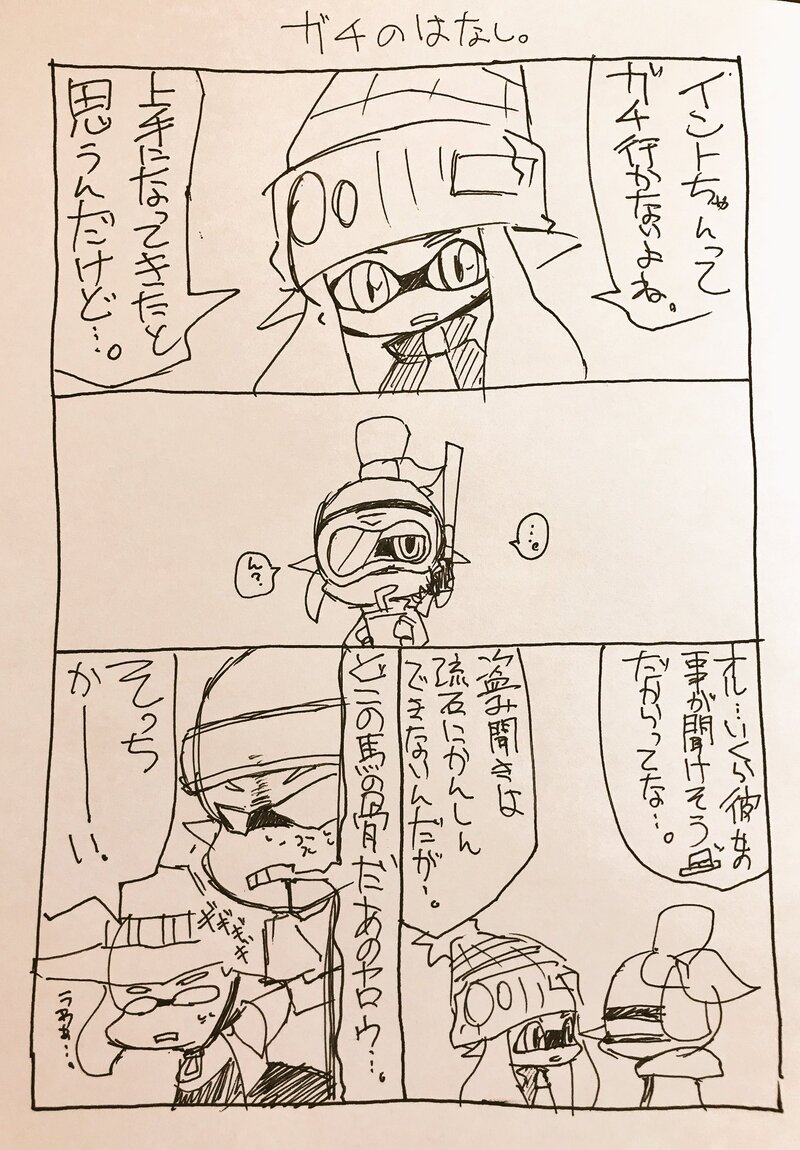 ガチのはなし。
イントちゃんって
ガチ行かないよね。
上手になってきたと
思うんだけど…。
…。
ん?
オル…いくら彼女の
事が聞けそう
だからってな…。
盗み聞きは
流石にかんしん
できないんだが…。
どこの馬の骨だあのヤロウ…。
ギギギギ
そっち
かーーい。
うわぁ…。